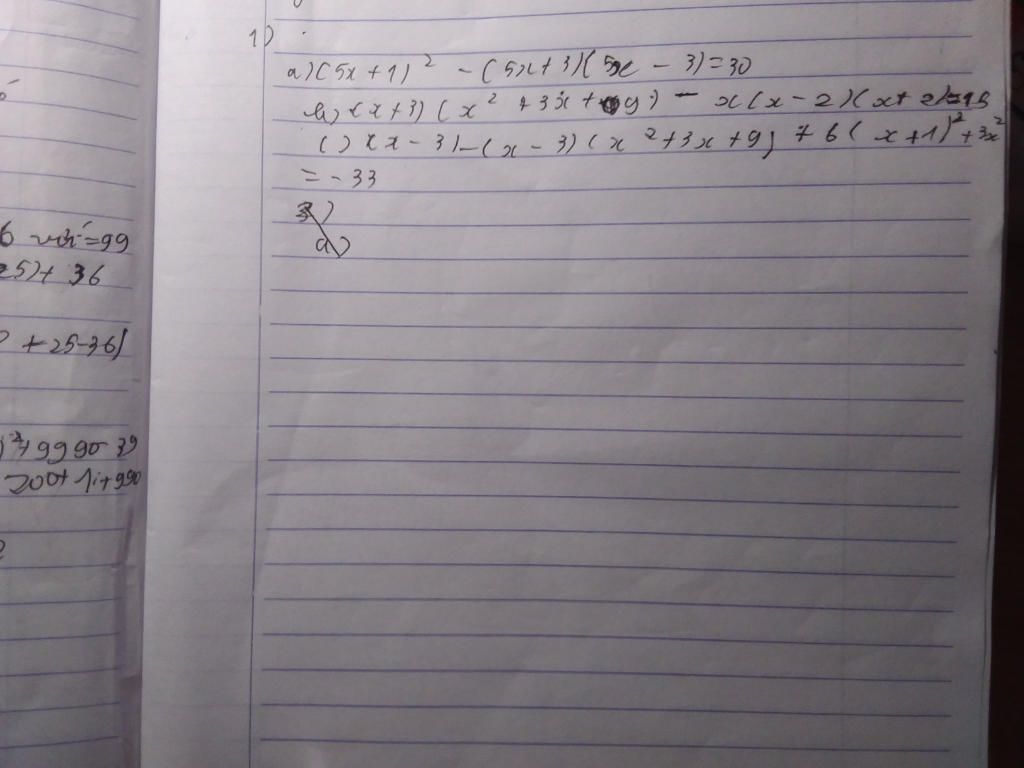 6 với = 99
25) + 36
+ 25 - 36)
+ 9990 - 39
200 + 1) + 990
1)
a) (5x + 1)² - (5x + 3)(5x - 3) = 30
b) (x + 3)(x² + 3x + 9) - x(x - 2)(x + 2) = 15
c) (x - 3) - (x - 3)(x² + 3x + 9) + 6(x + 1)² + 3x²
= - 33
a)